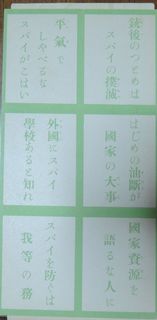 銃後のつとめは
スパイの撲滅
平氣で
しやべるな
スパイがこはい
はじめの油斷が
國家の大事
外國にスパイ
學校あると知れ
國家資源を
語るな人に
スパイを防ぐは
我等の務